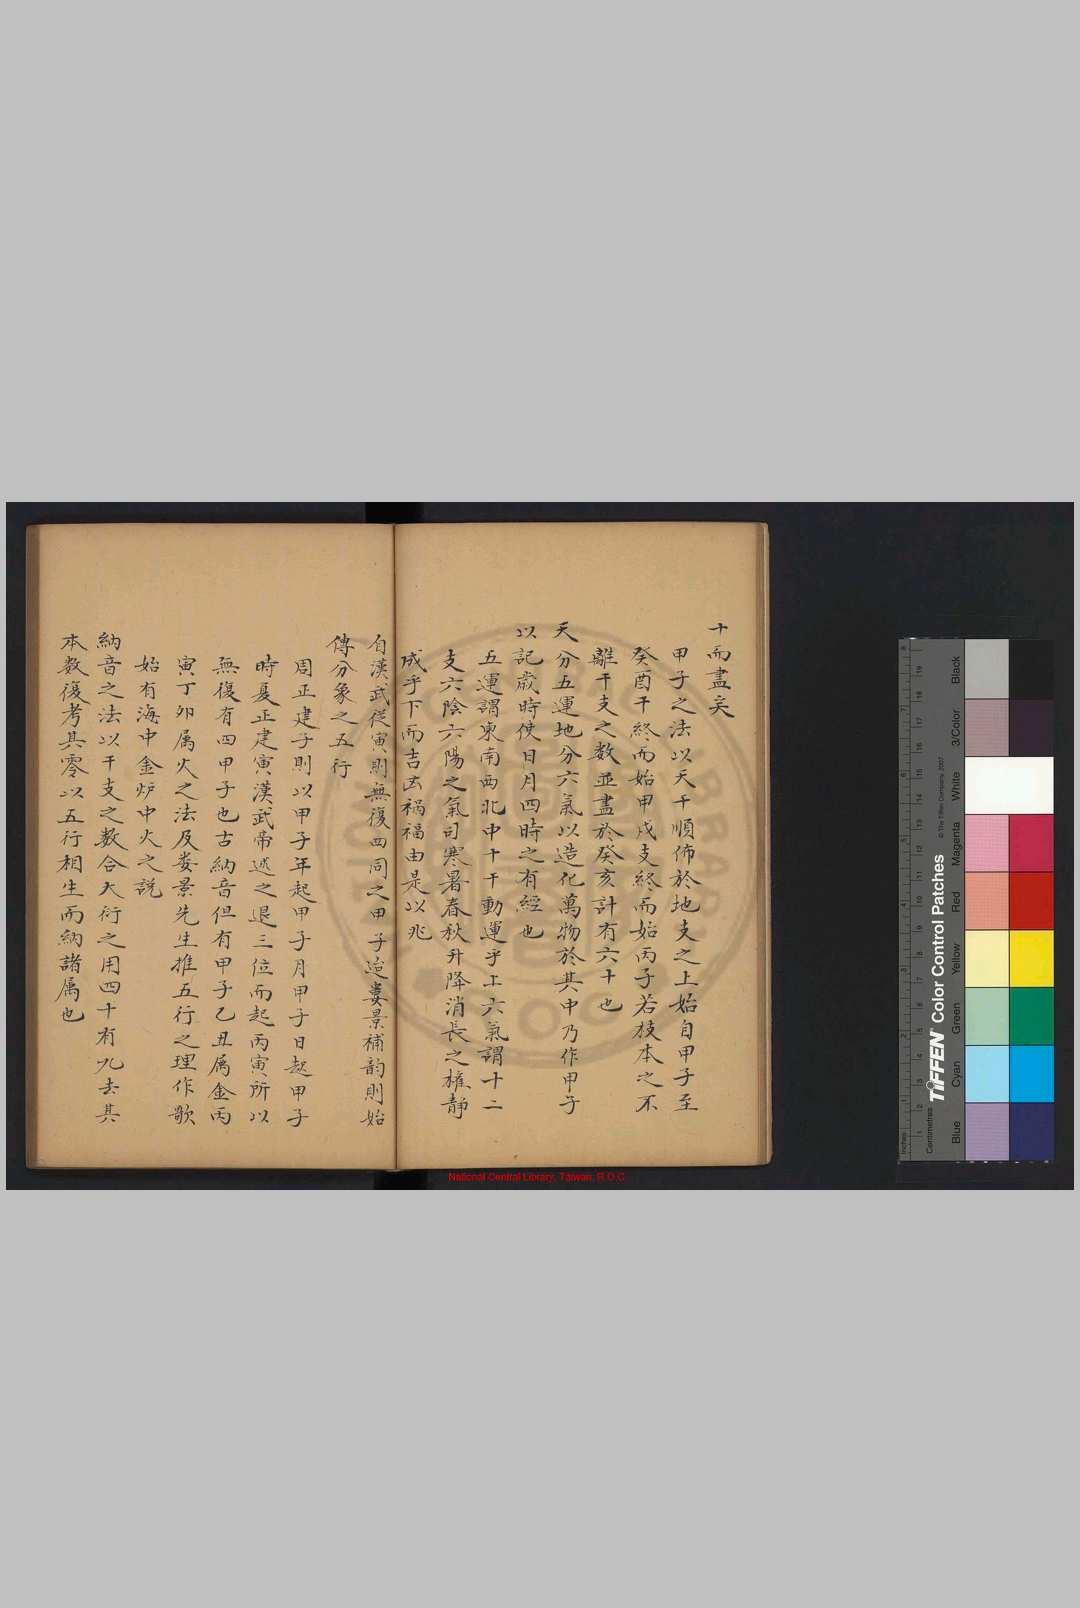 十而盡矣
甲子之法以天干順佈於地支之上始自甲子至
癸酉干終而始甲戌支終而始丙子若枝本之不
離干支之数並盡於癸亥計有六十也
天分五運地分六氣以造化萬物於其中乃作甲子
以記歲時使日月四時之有經也
五運謂東南西北中十干動運乎上六氣謂十二
支六陰六陽之氣司寒暑春秋升降消長之權静
成乎下而吉凶禍福由是以兆
自漢武從寅則無復四同之甲子迨婁景補韵則始
傳分象之五行
周正建子則以甲子年起甲子月甲子日起甲子
時夏正建寅漢武帝述之退三位而起丙寅所以
無復有四甲子也古納音但有甲子乙丑属金丙
寅丁卯属火之法及娄景先生推五行之理作歌
始有海中金炉中火之説
納音之法以干支之數合大衍之用四十有九去其
本数復考其零以五行相生而納諸属也
National Central Library, Taiwan, R.O.C
Inches
Centimetres
TIFFEN Color Control Patches
© The Tiffen Company, 2007
Blue
Cyan
Green
Yellow
Red
Magenta
White
3/Color
Black